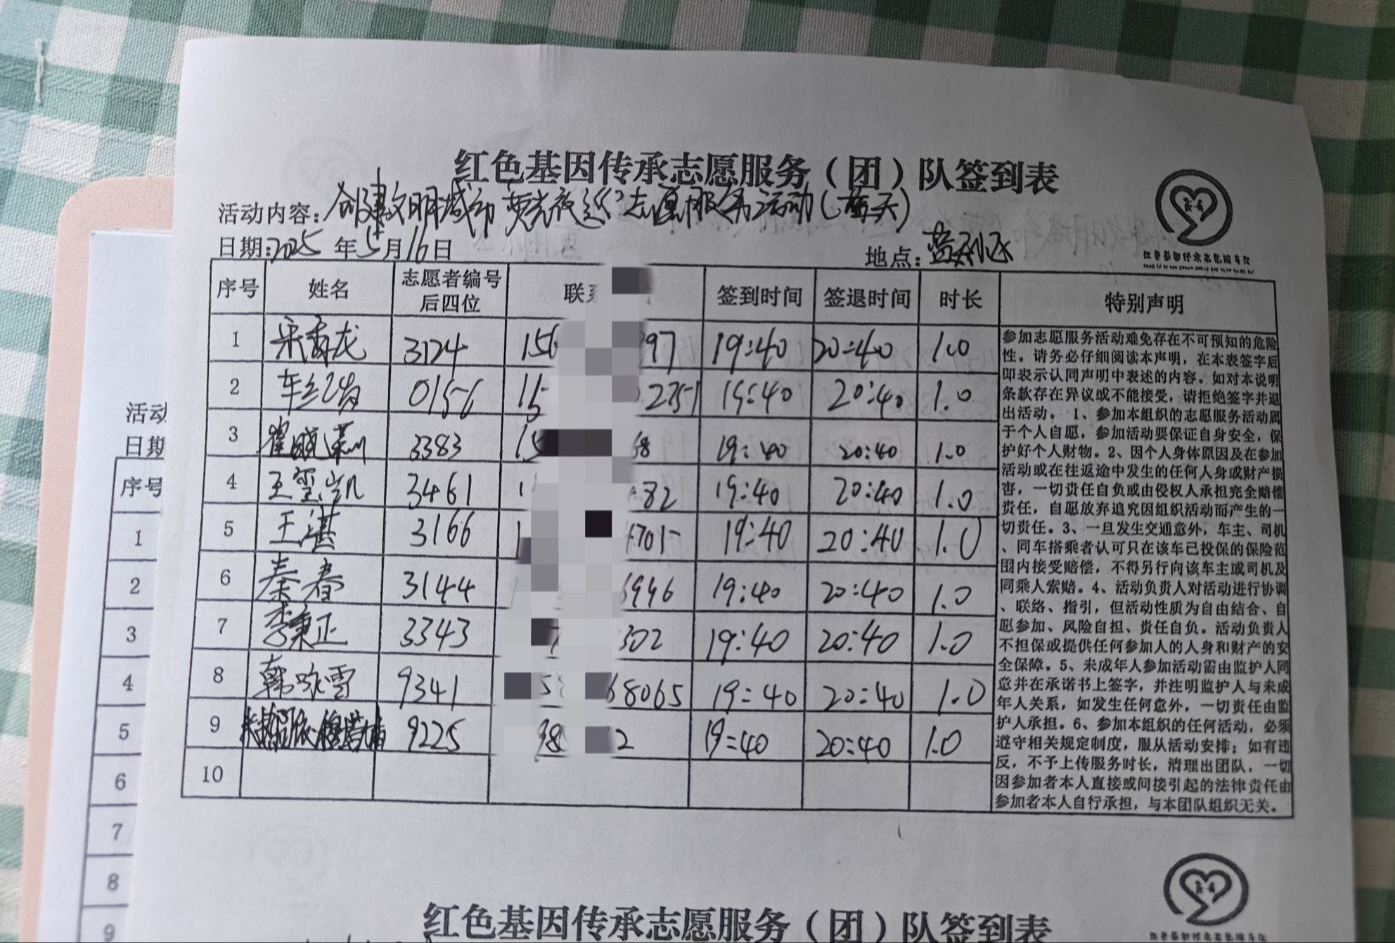 红色基因传承志愿服务（团）队签到表
活动内容：创建文明城市 荧光夜巡 志愿服务活动（蓝天）
日期：2025年5月16日 地点：
序号 姓名 志愿者编号后四位 联系 签到时间 签退时间 时长 特别声明
1 龙 3124 156 97 19:40 20:40 1.0
2 0156 15 2251 19:40 20:40 1.0
3 3383 15 68 19:40 20:40 1.0
4 王玺凯 3461 1 82 19:40 20:40 1.0
5 王湛 3166 1 19:40 20:40 1.0
6 秦春 3144 19:40 20:40 1.0
7 李秉正 3343 302 19:40 20:40 1.0
8 韩咏雪 9341 5 68065 19:40 20:40 1.0
9 9225 98 2 19:40 20:40 1.0
10
参加志愿服务活动难免存在不可预知的危险
性。请务必仔细阅读本声明，在本表签字后
即表示认同声明中表述的内容。如对本说明
条款存在异议或不能接受，请拒绝签字并退
出活动，1、参加本组织的志愿服务活动属
于个人自愿，参加活动要保证自身安全，保
护好个人财物。2、因个人身体原因及在参加
活动或在往返途中发生的任何人身或财产损
害，一切责任自负或由侵权人承担完全赔偿
责任，自愿放弃追究因组织活动而产生的一
切责任。3、一旦发生交通意外，车主、司机
、同车搭乘者认可只在该车已投保的保险范
围内接受赔偿，不得另行向该车主或司机及
同乘人索赔。4、活动负责人对活动进行协调
、联络、指引，但活动性质为自由结合、自
愿参加、风险自担、责任自负。活动负责人
不担保或提供任何参加人的人身和财产的安
全保障。5、未成年人参加活动需由监护人同
意并在承诺书上签字，并注明监护人与未成
年人关系，如发生任何意外，一切责任由监
护人承担。6、参加本组织的任何活动，必须
遵守相关规定制度，服从活动安排；如有违
反，不予上传服务时长，清理出团队，一切
因参加者本人直接或间接引起的法律责任由
参加者本人自行承担，与本团队组织无关。
活动
日期
序号
1
2
3
4
5
6
7
8
9
红色基因传承志愿服务（团）队签到表